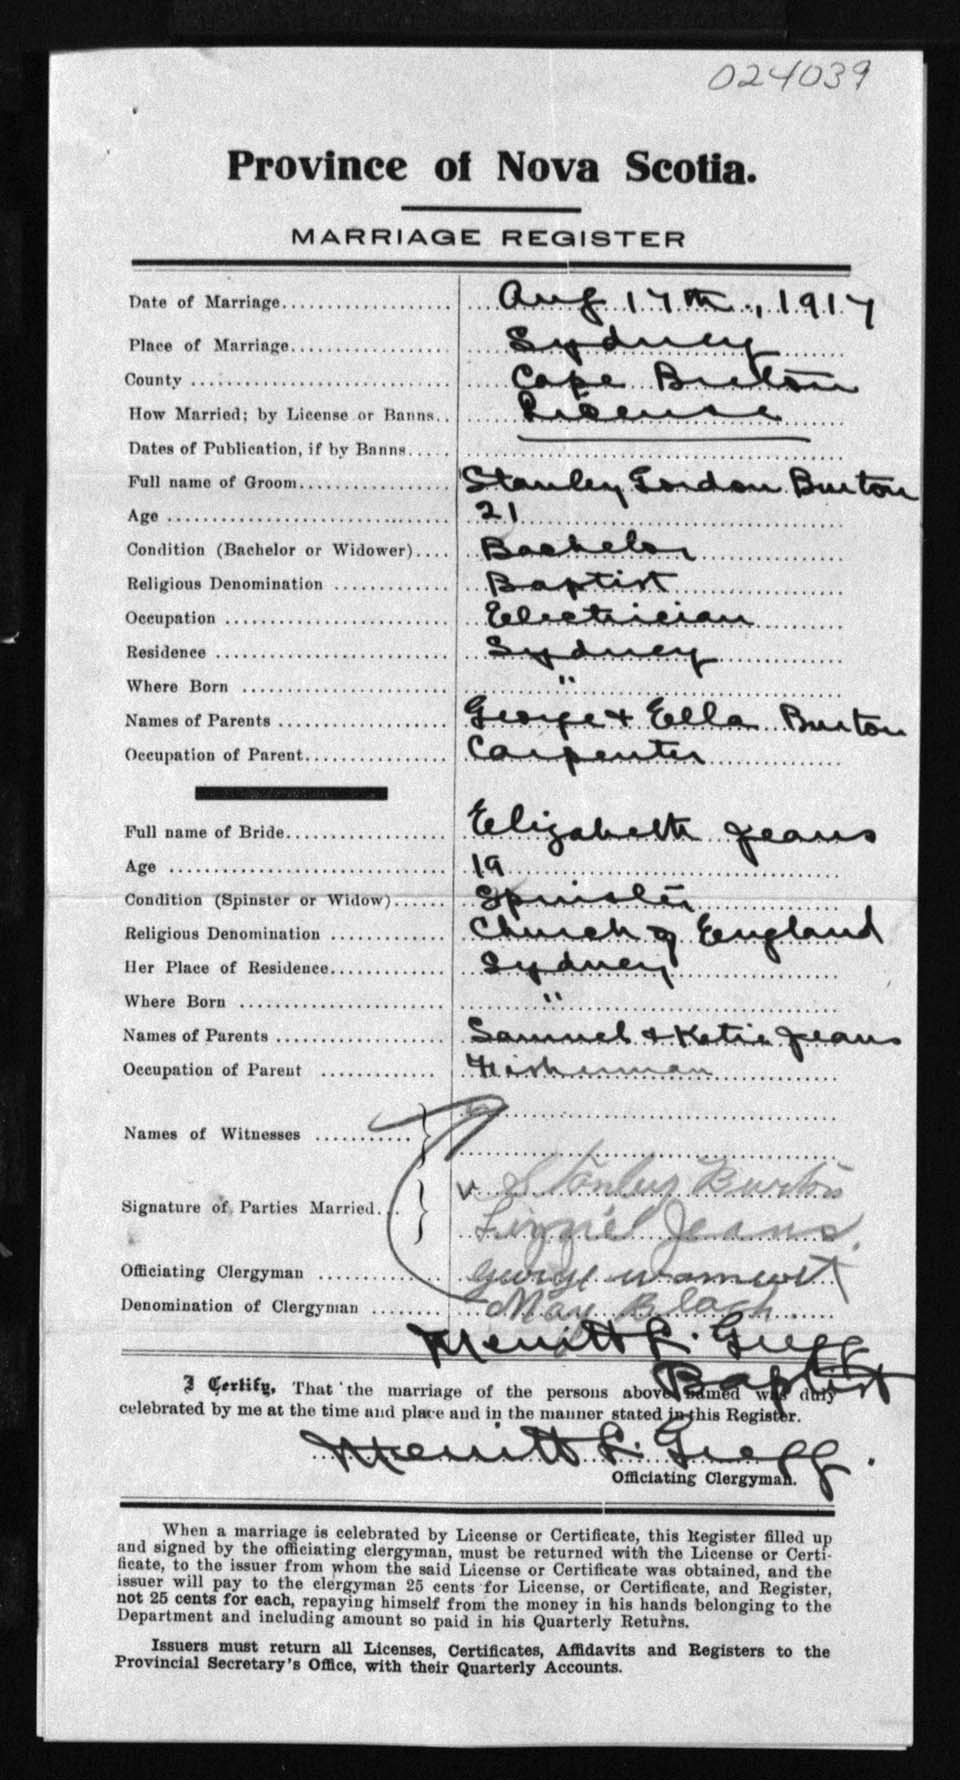 024039
Province of Nova Scotia.
MARRIAGE REGISTER
Date of Marriage Aug 17th, 1917
Place of Marriage Sydney
County Cape Breton
How Married; by License or Banns License
Dates of Publication, if by Banns
Full name of Groom Stanley Gordon Burton
Age 21
Condition (Bachelor or Widower) Bachelor
Religious Denomination Baptist
Occupation Electrician
Residence Sydney
Where Born "
Names of Parents George & Ella Burton
Occupation of Parent Carpenter
Full name of Bride Elizabeth Jeans
Age 19
Condition (Spinster or Widow) Spinster
Religious Denomination Church of England
Her Place of Residence Sydney
Where Born "
Names of Parents Samuel & Katie Jeans
Occupation of Parent Fisherman
Names of Witnesses
Signature of Parties Married Stanley Burton
Lizzie Jeans.
Officiating Clergyman George
Denomination of Clergyman May
Merritt L. Gregg
Baptist
I Certify, That the marriage of the persons above named was duly
celebrated by me at the time and place and in the manner stated in this Register.
Merritt L. Gregg.
Officiating Clergyman.
When a marriage is celebrated by License or Certificate, this Register filled up
and signed by the officiating clergyman, must be returned with the License or Certi-
ficate, to the issuer from whom the said License or Certificate was obtained, and the
issuer will pay to the clergyman 25 cents for License, or Certificate, and Register,
not 25 cents for each, repaying himself from the money in his hands belonging to the
Department and including amount so paid in his Quarterly Returns.
Issuers must return all Licenses, Certificates, Affidavits and Registers to the
Provincial Secretary's Office, with their Quarterly Accounts.